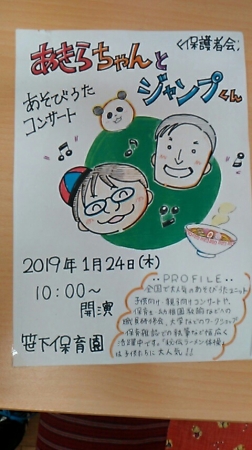 〈保護者会〉
あきらちゃんと
ジャンプくん
あそびうた
コンサート
2019年1月24日(木)
10:00～
開演
笹下保育園
・・PROFILE・・
全国で大人気のあそびうたユニット
子供向け・親子向けコンサートや、
保育士・幼稚園教諭などへの
職員研修会、大学などのワークショップ
保育雑誌での執筆など幅広く
活躍中です。「伝伝ラーメン体操」
は子供たちに大人気!!